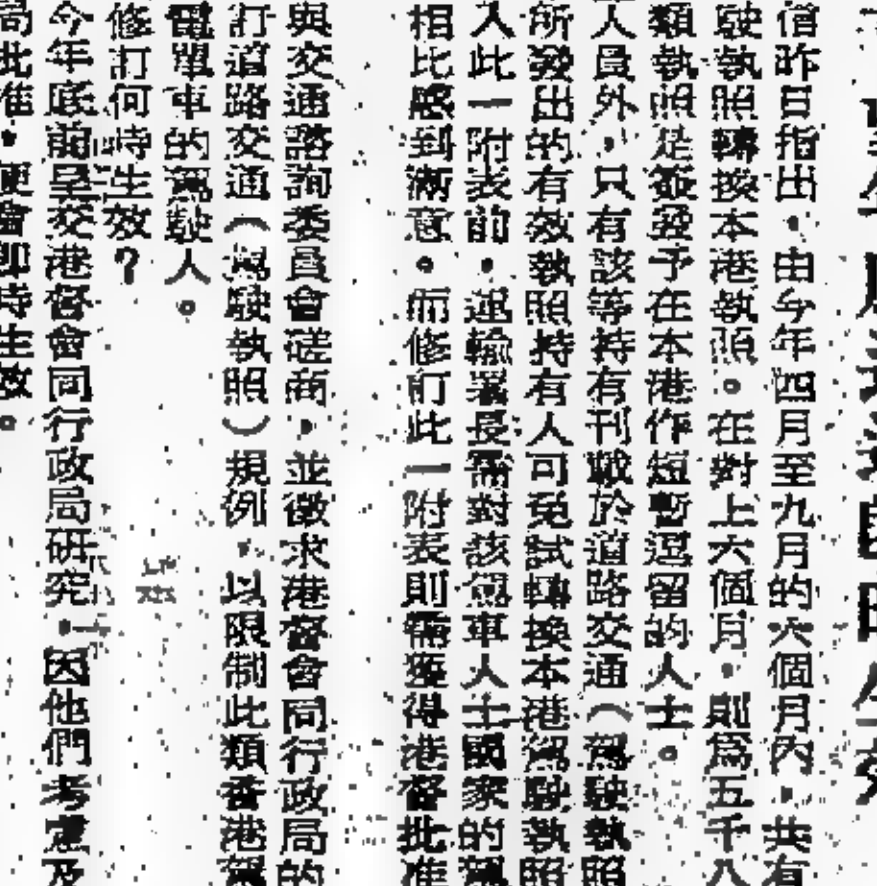 信昨日指出，由今年四月至九月的六個月內，共有
駛執照轉換本港執照。在對上六個月，則為五千八
類執照是簽發予在本港作短暫逗留的人士。
人員外，只有該等持有刊載於道路交通（駕駛執照
所發出的有效執照持有人可免試轉換本港駕駛執照
入此一附表前，運輸署長需對該駕車人士國家的駕
相比感到滿意。而修訂此一附表則需獲得港督批准
與交通諮詢委員會磋商，並徵求港督會同行政局的
訂道路交通（駕駛執照）規例，以限制此類香港駕
電單車的駕駛人。
修訂何時生效？
今年底前呈交港督會同行政局研究，因他們考慮及
局批准，便會即時生效。